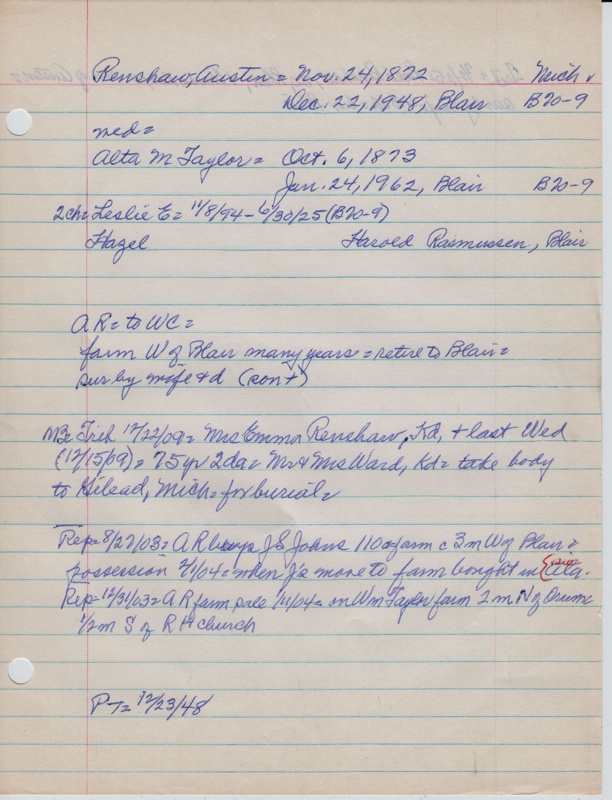 Renshaw, Austin = Nov. 24, 1872 Mich
Dec. 22, 1948, Blair B20-9
med=
Alta M Taylor = Oct. 6, 1873
Jan. 24, 1962, Blair B20-9
2ch= Leslie E= 11/8/94-6/30/25 (B20-9)
Hazel Harold Rasmussen, Blair
AR= to WC=
farm W of Blair many years = retire to Blair =
sur by wife + d (son +)
Trib 12/22/09= Mrs Emma Renshaw, Kd, + last Wed
(12/15/09) = 75yr 2da= Mr & Mrs Ward, Kd= take body
to Gilead, Mich= for burial=
Rep= 8/27/03= AR buys J S Johns 110a farm c 3m W of Blair =
possession 3/1/04= when J's move to farm bought in
Rep= 12/31/03= AR farm sale on Wm Taylor farm 2m N of Orum
1/2m S of R H church
PT= 12/23/48